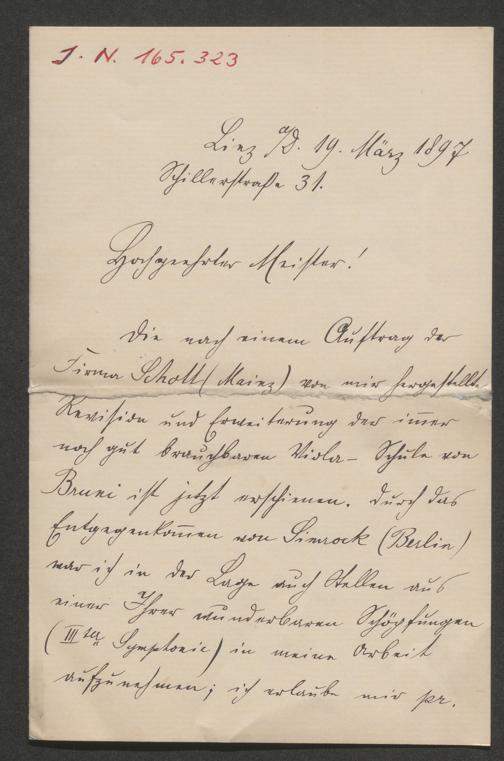 J. N. 165.323
Linz a/D. 19. März 1897
Schillerstraße 31.
Hochgeehrter Meister!
Die nach einem Auftrag der
Firma Schott (Mainz) von mir hergestellte
Revision und Erweiterung der im̅er
noch gut brauchbaren Viola-Schule von
Bruni ist jetzt erschienen. Durch das
Entgegenkom̅en von Simrock (Berlin)
war ich in der Lage auch Stellen aus
einer Ihrer wunderbaren Schöpfungen
(IIIter Symphonie) in meine Arbeit
aufzunehmen; ich erlaube mir pr.